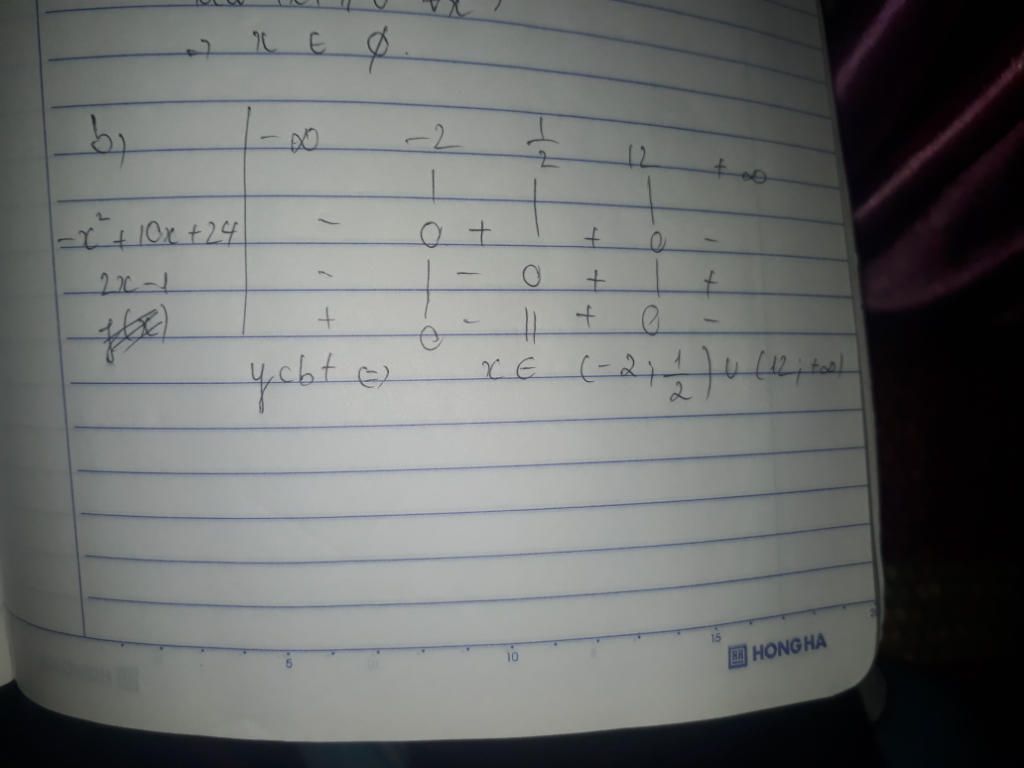 => x ∈ ∅.
b) -∞ -2 1/2 12 +∞
-x² + 10x + 24 - 0 + | + 0 -
2x-1 - | - 0 + | +
f(x) + 0 - || + 0 -
ycbt <=> x ∈ (-2; 1/2) ∪ (12; +∞)
5 10 15
HONG HA